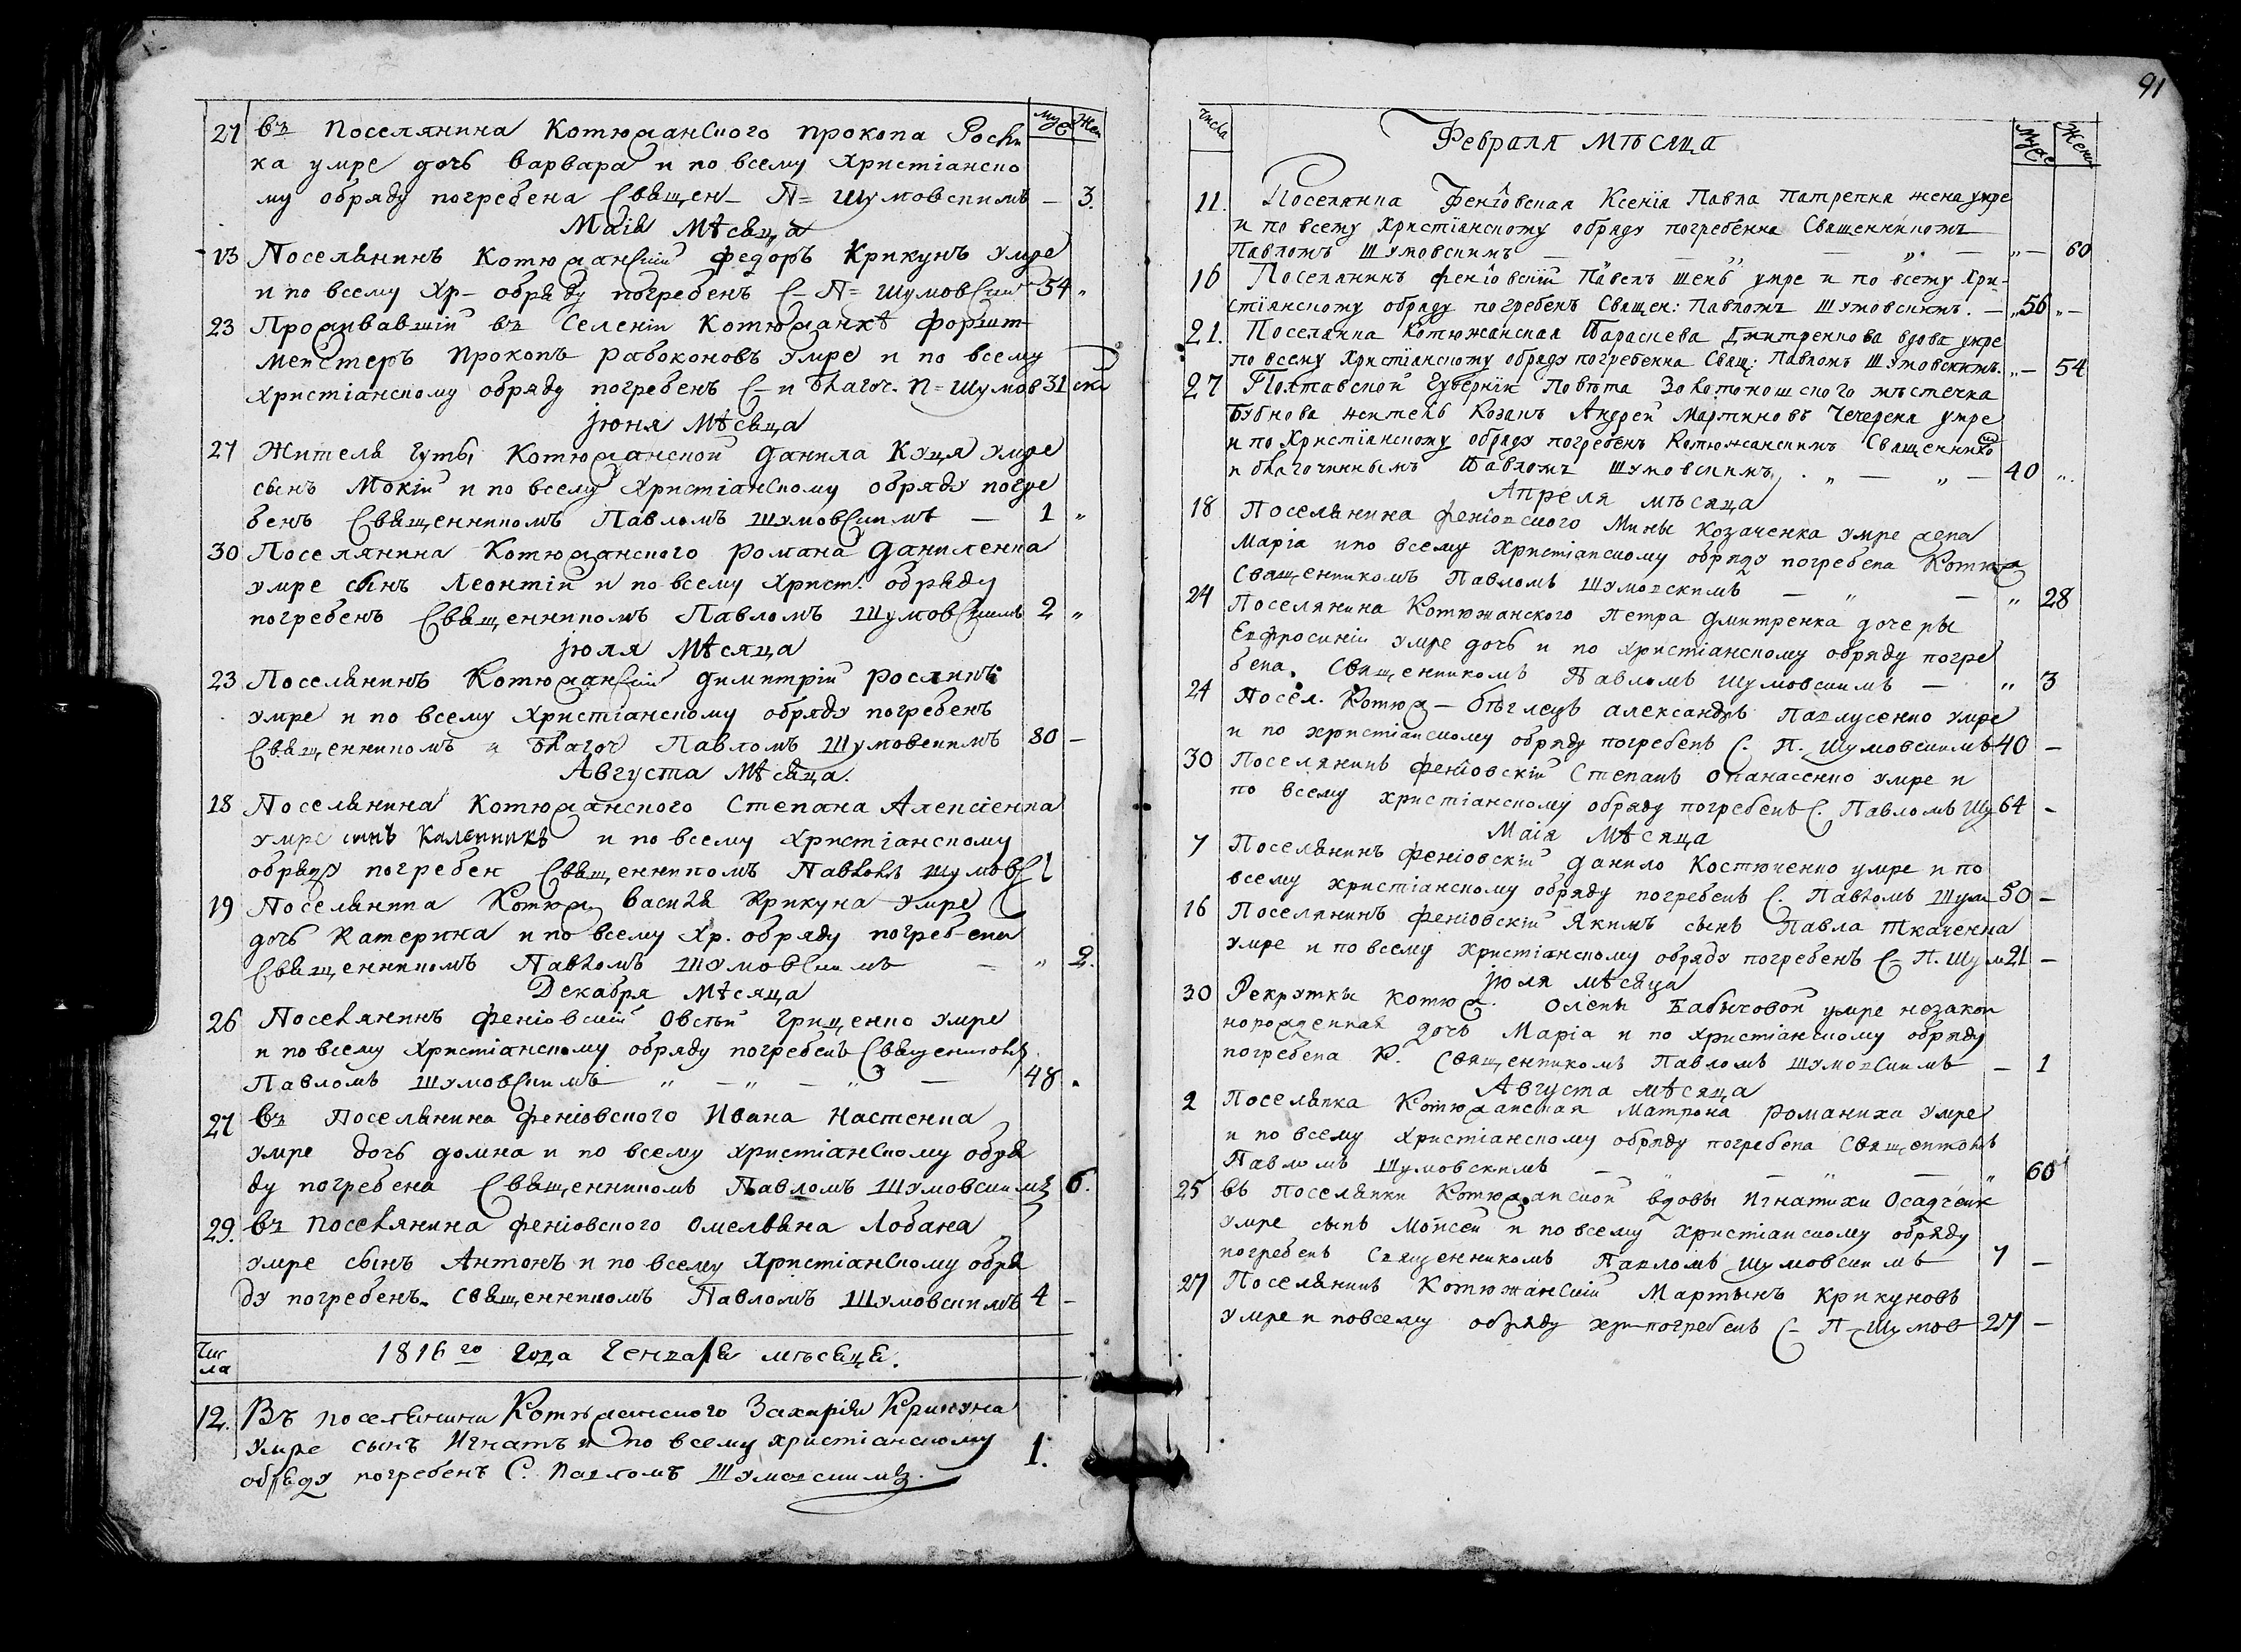 Муж Жен
27 въ Поселянина Котюжанского Прокопа
ка умре дочь Варвара и по всему Христіанско
му обряду погребена Священ– П= Шумовскимъ — 3.
Маія Мѣсяца
13 Поселянинъ Котюжанскій Федоръ Крикунъ умре
и по всему Хр– обряду погребенъ С– П= Шумовским 54 „
23 Проживавшій въ Селеніи Котюжанкѣ форшт
мейстеръ Прокопъ Рабоконовъ умре и по всему
Христіанскому обряду погребенъ С– и благоч. П= Шумов 31 ски
Іюня Мѣсяца
27 Жителя гуты Котюжанской Данила Куця умре
сынъ Мокій и по всему Христіанскому обряду погре
бенъ Священникомъ Павломъ Шумовскимъ — 1 „
30 Поселянина Котюжанского Романа Даниленка
умре сынъ Леонтій и по всему Христ. обряду
погребенъ Священникомъ Павломъ Шумовскимъ 2 „
Іюля Мѣсяца
23 Поселянинъ Котюжанскій Димитрій
умре и по всему Христіанскому обряду погребенъ
Священникомъ и благоч Павломъ Шумовскимъ 80 —
Августа Мѣсяца.
18 Поселянина Котюжанского Степана Алексіенка
умре сынъ Каленникъ и по всему Христіанскому
обряду погребен Священникомъ Павломъ Шумовс 1
19 Поселянина Котюж Василя Крикуна умре
дочь Катерина и по всему Хр. обряду погреб-ена
Священникомъ Павломъ Шумовскимъ — „ 2.
Декабря Мѣсяца
26 Поселянинъ Феніовскій Овсѣй Грищенко умре
и по всему Христіанскому обряду погребенъ Священиком
Павломъ Шумовскимъ „ — „ — „ — 48 „
27 въ Поселянина Феніовского Ивана Настенка
умре дочь Домна и по всему Христіанскому обря
ду погребена Священникомъ Павломъ Шумовскимъ 6.
29. въ Поселянина Феніовского Омеляна Лобана
умре сынъ Антонъ и по всему Христіанскому обря
ду погребенъ. Священникомъ Павломъ Шумовскимъ 4 –
Чис
ла
1816го года Генваря мѣсяця.
12. Въ поселянина Котюжанского Захарія Крикуна
умре сынъ Игнатъ и по всему христіанскому
обряду погребенъ С. Павломъ Шумовскимъ. 1.
91
Числа Февраля мѣсяца Муже Женк
11. Поселянка Феніовская Ксенія Павла Патрепка жена умре
и по всему Христіанскому обряду погребенна Священникомъ
Павломъ Шумовскимъ — — „ — „ — 60
16 Поселянинъ Феніовскій Павелъ Шенъ умре и по всему Хри-
стіанскому обряду погребенъ Священ: Павломъ Шумовскимъ. — „ 56 „ –
21. Поселянка Котюжанская Параскева Дмитренкова вдова умре
по всему Христіанскому обряду погребенна Свящ: Павломъ Шумовскимъ. „ — 54
27 Полтавской Губерніи Повѣта Золотоношского мѣстечка
Бубнова житель Козакъ Андрей Мартиновъ Чечерека умре
и по Христіанскому обряду погребенъ Котюжанскимъ Священико
и благочиннымъ Павломъ Шумовскимъ. . „ — „ — 40 „.
Апреля мѣсяца
18 Поселянина Феніовского Мины Козаченка умре жена
Марія и по всему Христіанскому обряду погребена Котюж
Священникомъ Павломъ Шумовскимъ — „ — „ 28
24 Поселянина Котюжанского Петра Дмитренка дочеры
Евфросиніи умре дочь и по христіанскому обряду погре
бена. Священникомъ Павломъ Шумовскимъ — „ 3
24 Посел. Котюж — бѣглецъ Александръ Павлусенко умре
и по христіанскому обряду погребенъ С. П. Шумовскимъ 40 –
30 Поселянинъ Феніовскій Степанъ Опанасенко умре и
по всему христіанскому обряду погребенъ С. Павломъ Шу 64 –
Маія Мѣсяца
7 Поселянинъ Феніовскій Данило Костюченко умре и по
всему христіанскому обряду погребенъ С. Павломъ Шум 50 –
16 Поселянинъ Феніовскій Якимъ сынъ Павла Ткаченка
умре и по всему христіанскому обряду погребенъ С– П. Шум 21 –
Іюля мѣсяца
30 Рекрутки Котюж. Олены Бабычовой умре незакон
норожденная дочь Марія и по христіанскому обряду
погребена К. Священникомъ Павломъ Шумовскимъ – 1
Августа мѣсяца
2 Поселянка Котюжанская Матрона Романиха умре
и по всему Христіанскому обряду погребена Священикомъ
Павломъ Шумовскимъ — „ — „ — „ 60
25 въ Поселянки Котюжанской вдовы Игнатихи Осадчей
умре сынъ Мойсей и по всему христіанскому обряду
погребенъ Священникомъ Павломъ Шумовскимъ 7 –
27 Поселянинъ Котюжанскій Мартынъ Крикуновъ
умре и повсему обряду хри– погребенъ С– П– Шумов 27 –